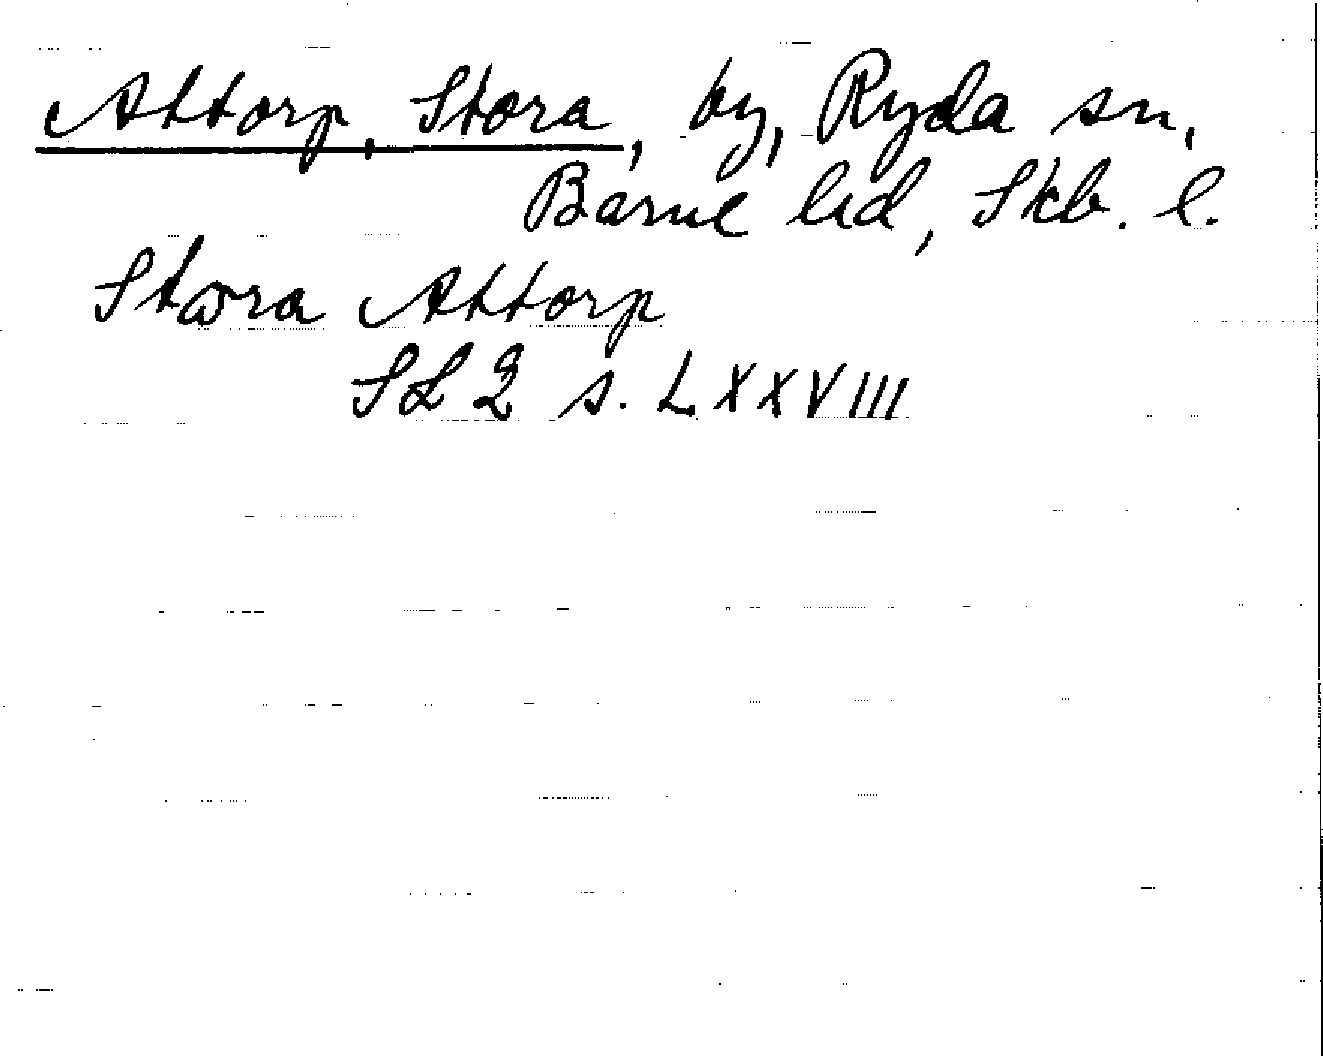 Attorp, Stora, by, Ryda sn,
Barne hd, Skb. l.
Stora Attorp
SL 2 s. LXXVIII